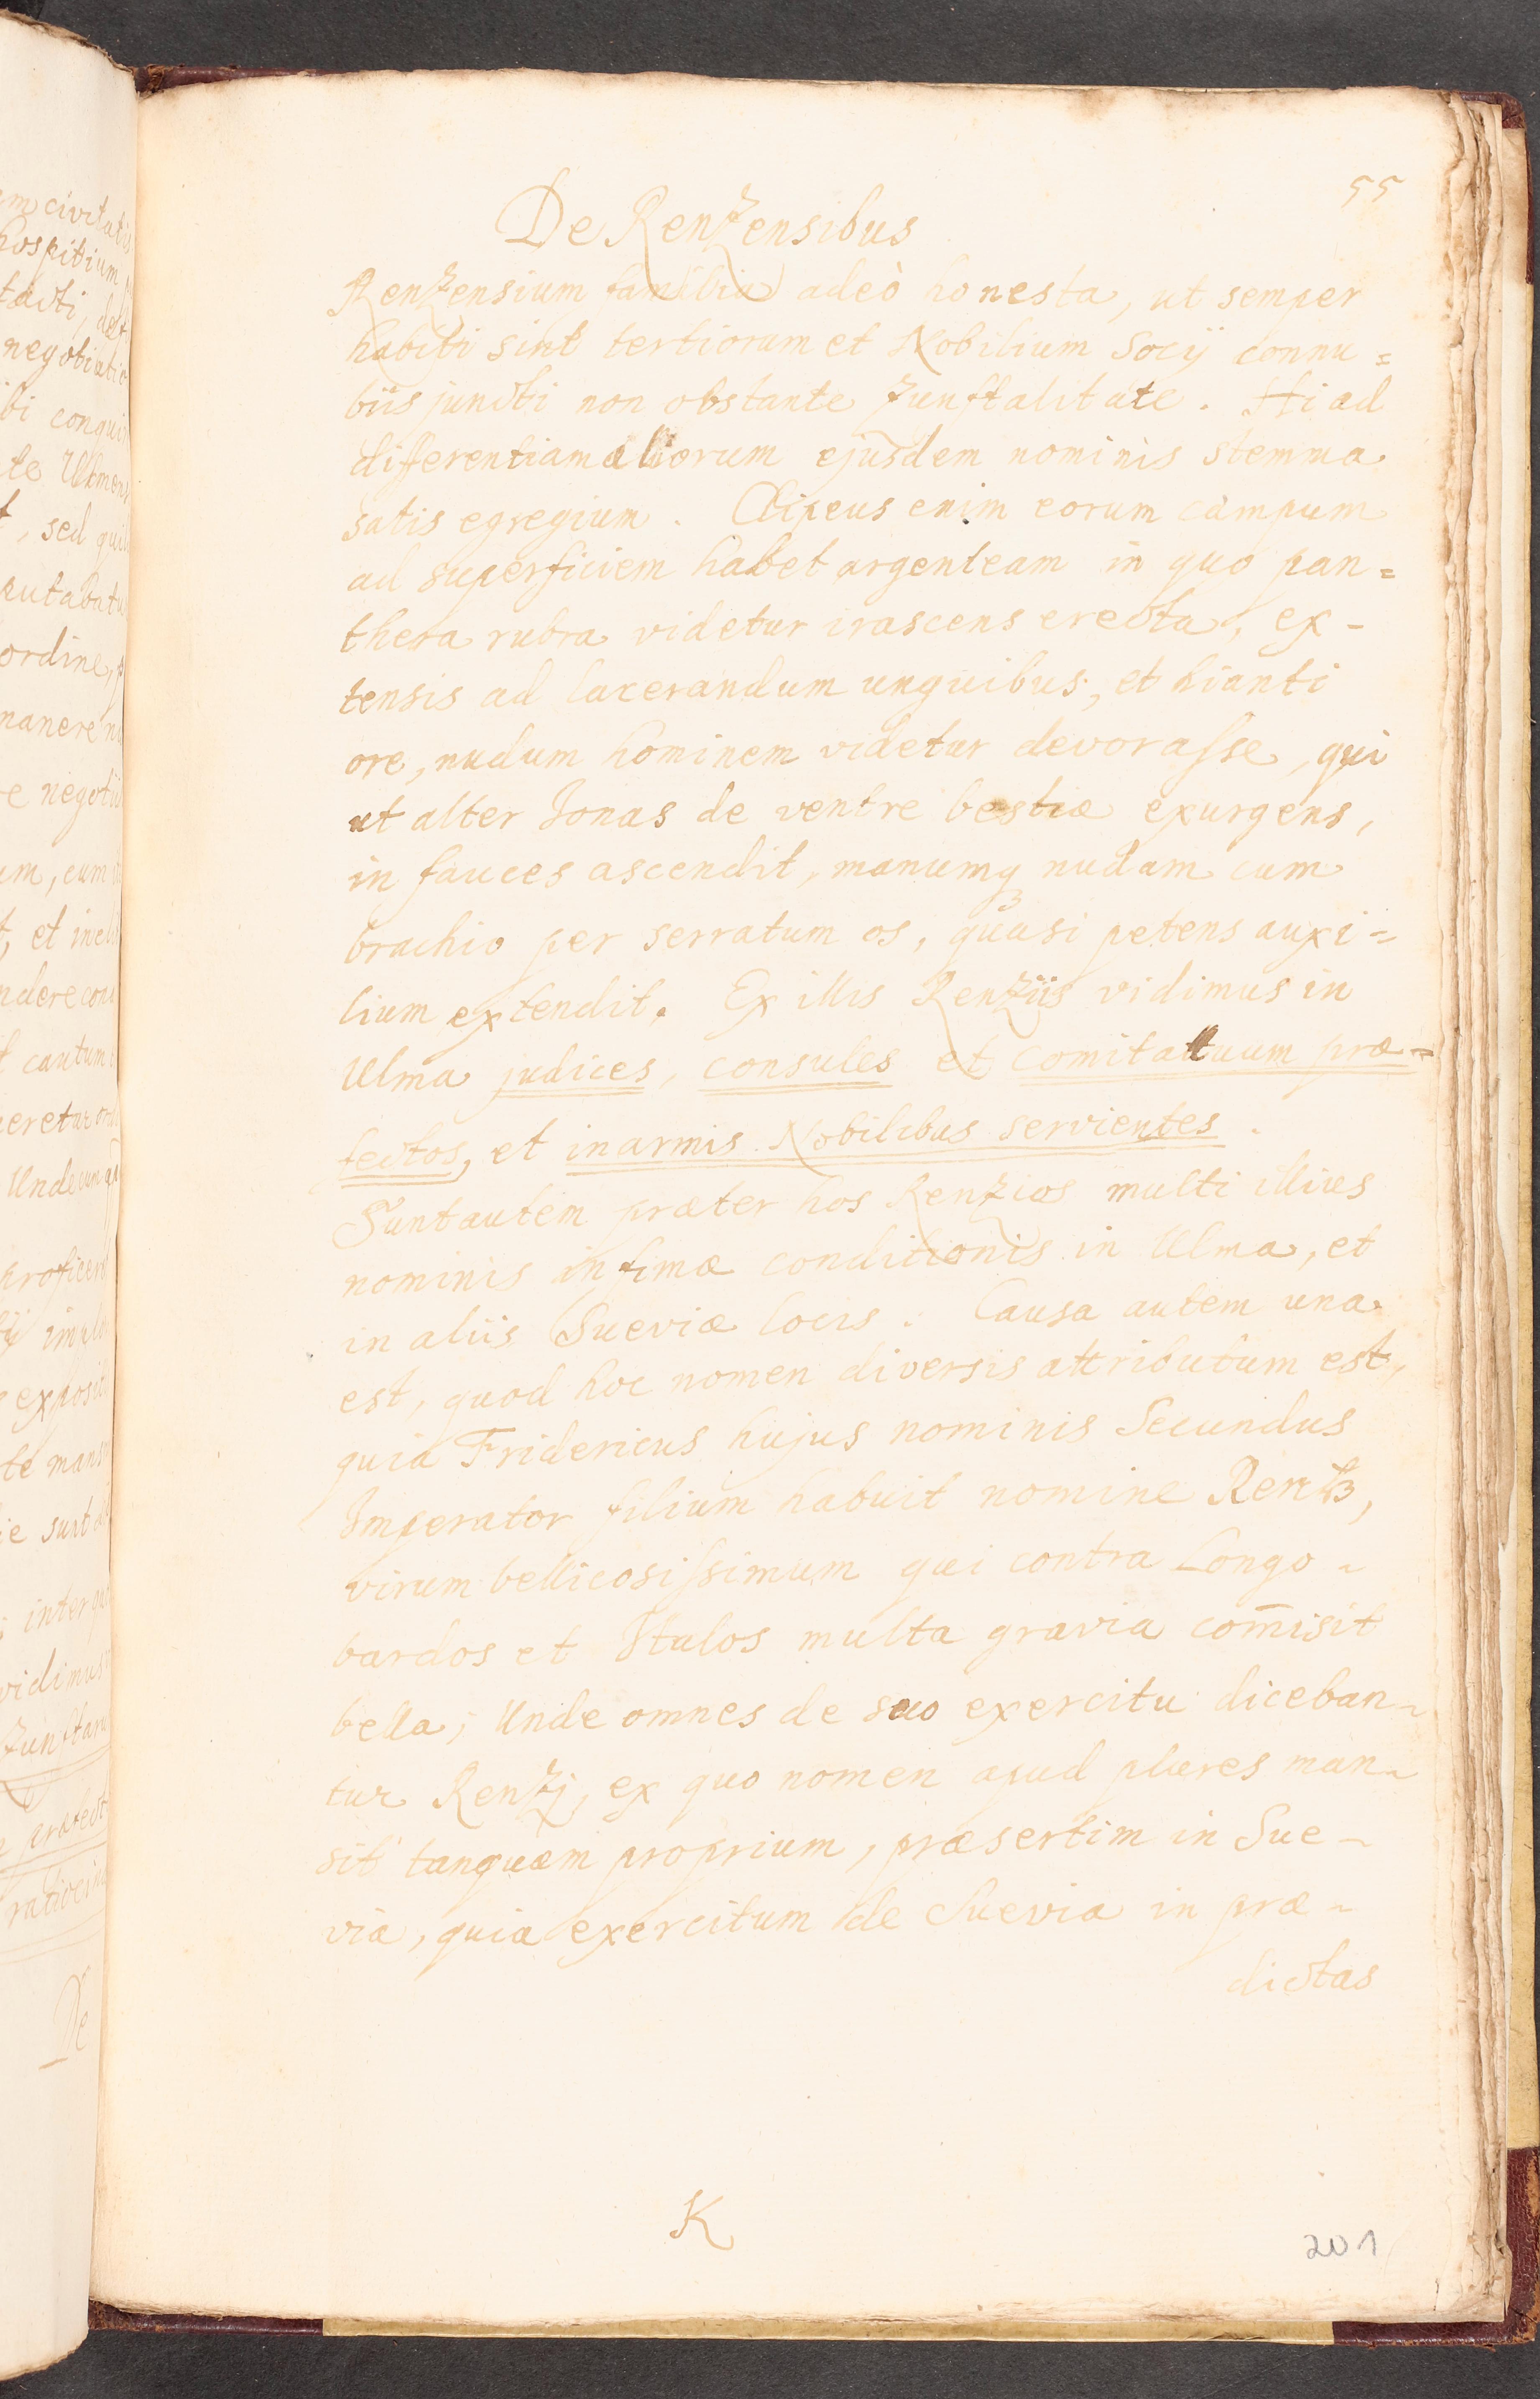 55
De Renzensibus
Renzensium familia adeò honesta, ut semper
habiti sint tertiorum et Nobilium Socÿ connu=
biis juncti non obstante Zunftalitate. Hi ad
differentiam aliorum ejusdem nominis stemma
satis egregium. Clipeus enim eorum campum
ad superficiem habet argenteam in quo pan=
thera rubra videtur irascens erecta, ex-
tensis ad lacerandum unguibus, et hianti
ore, nudum hominem videtur devorasse, qui
ut alter Jonas de ventre bestiæ exurgens,
in fauces ascendit, manumq3 nudam cum
brachio per serratum os, quasi petens auxi=
lium extendit. Ex illis Renziis vidimus in
Ulma judices, consules et comitatuum præ=
fectos, et in armis Nobilibus servientes.
Sunt autem præter hos Renzios multi illius
nominis infimæ conditionis in Ulma, et
in aliis Sueviæ locis. Causa autem una
est, quod hoc nomen diversis attributum est,
quia Fridericus hujus nominis Secundus
Imperator filium habuit nomine Rentz,
virum bellicosissimum qui contra Longo-
bardos et Italos multa gravia com̄isit
bella; Unde omnes de suo exercitu diceban-
tur Renzj, ex quo nomen apud plures man-
sit tanquam proprium, præsertim in Sue-
via, quia exercitum de Suevia in præ-
dictas
K
201
em civitatis
hospitium
tacti, de
negotiatio
ibi conqui
te Ulmens
t, sed qui
putabatu
ordine,
manere
e negotii
um, cum
t, et in
ndere con
t cantum
neretur
Unde cum
proficer
exposit
te mans
ie sunt
inter
vidimus
Zunftaru
præfect
ratiocin
De